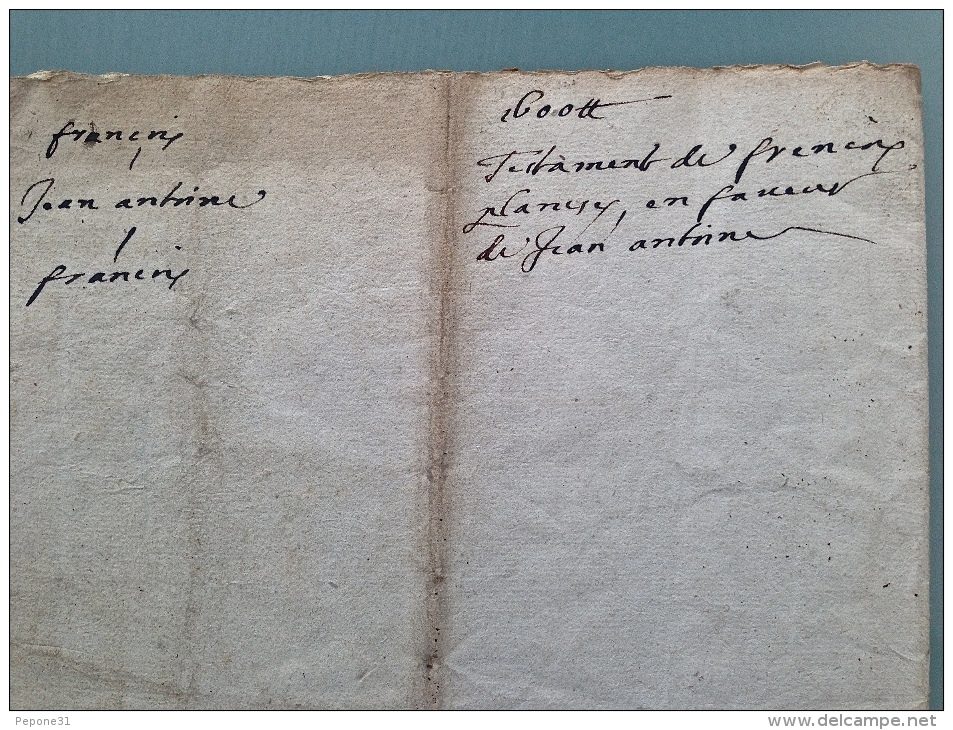 francois
Jean antoine
francois
Testament de frencois
plancys, en faueur
de Jean antoine
Pepone31
www.delcampe.net